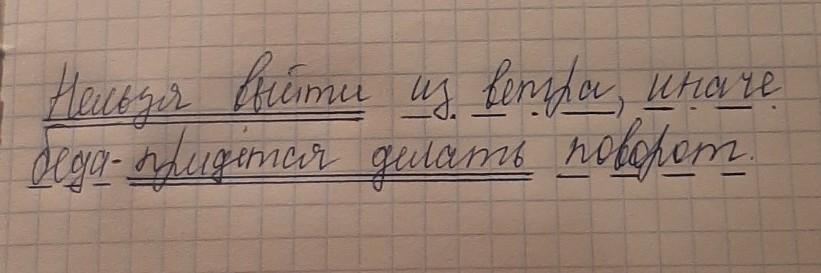 Нельзя выйти из ветра, иначе
беда- придётся делать поворот.